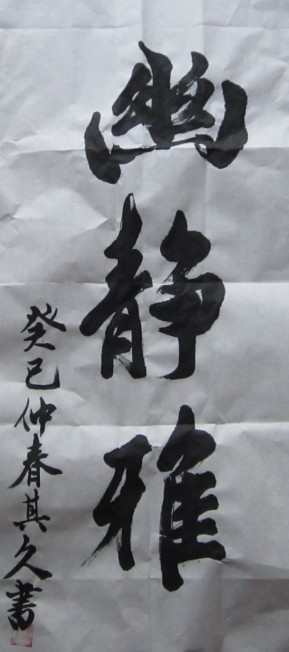 幽静雅
癸巳仲春其久書